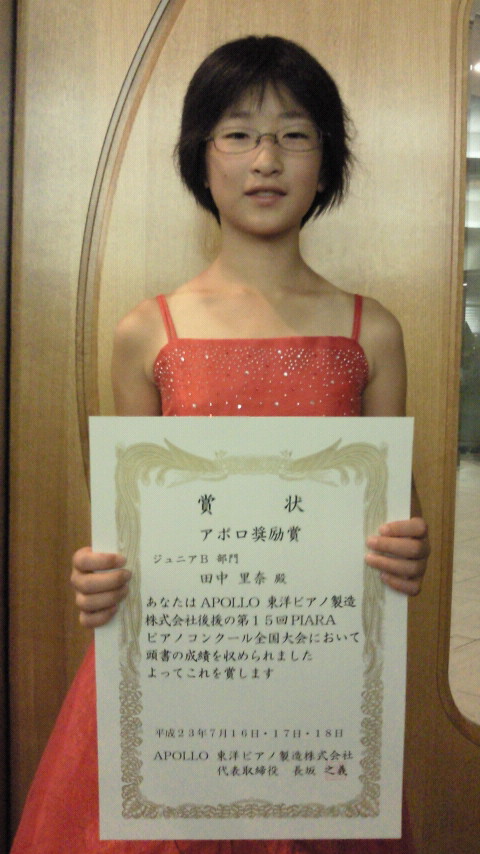 賞 状
アポロ奨励賞
ジュニアB 部門
田中 里奈 殿
あなたは APOLLO 東洋ピアノ製造
株式会社後援の第15回PIARA
ピアノコンクール全国大会において
頭書の成績を収められました
よってこれを賞します
平成23年7月16日・17日・18日
APOLLO 東洋ピアノ製造株式会社
代表取締役 長坂 之義